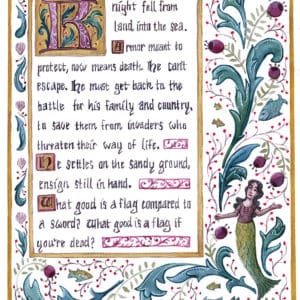 Knight fell from
land, into the sea.
Armor meant to
protect, now means death. He can't
escape. He must get back to the
battle for his family and country,
to save them from invaders who
threaten their way of life.
He settles on the sandy ground,
ensign still in hand.
What good is a flag compared to
a sword? What good is a flag if
you're dead?